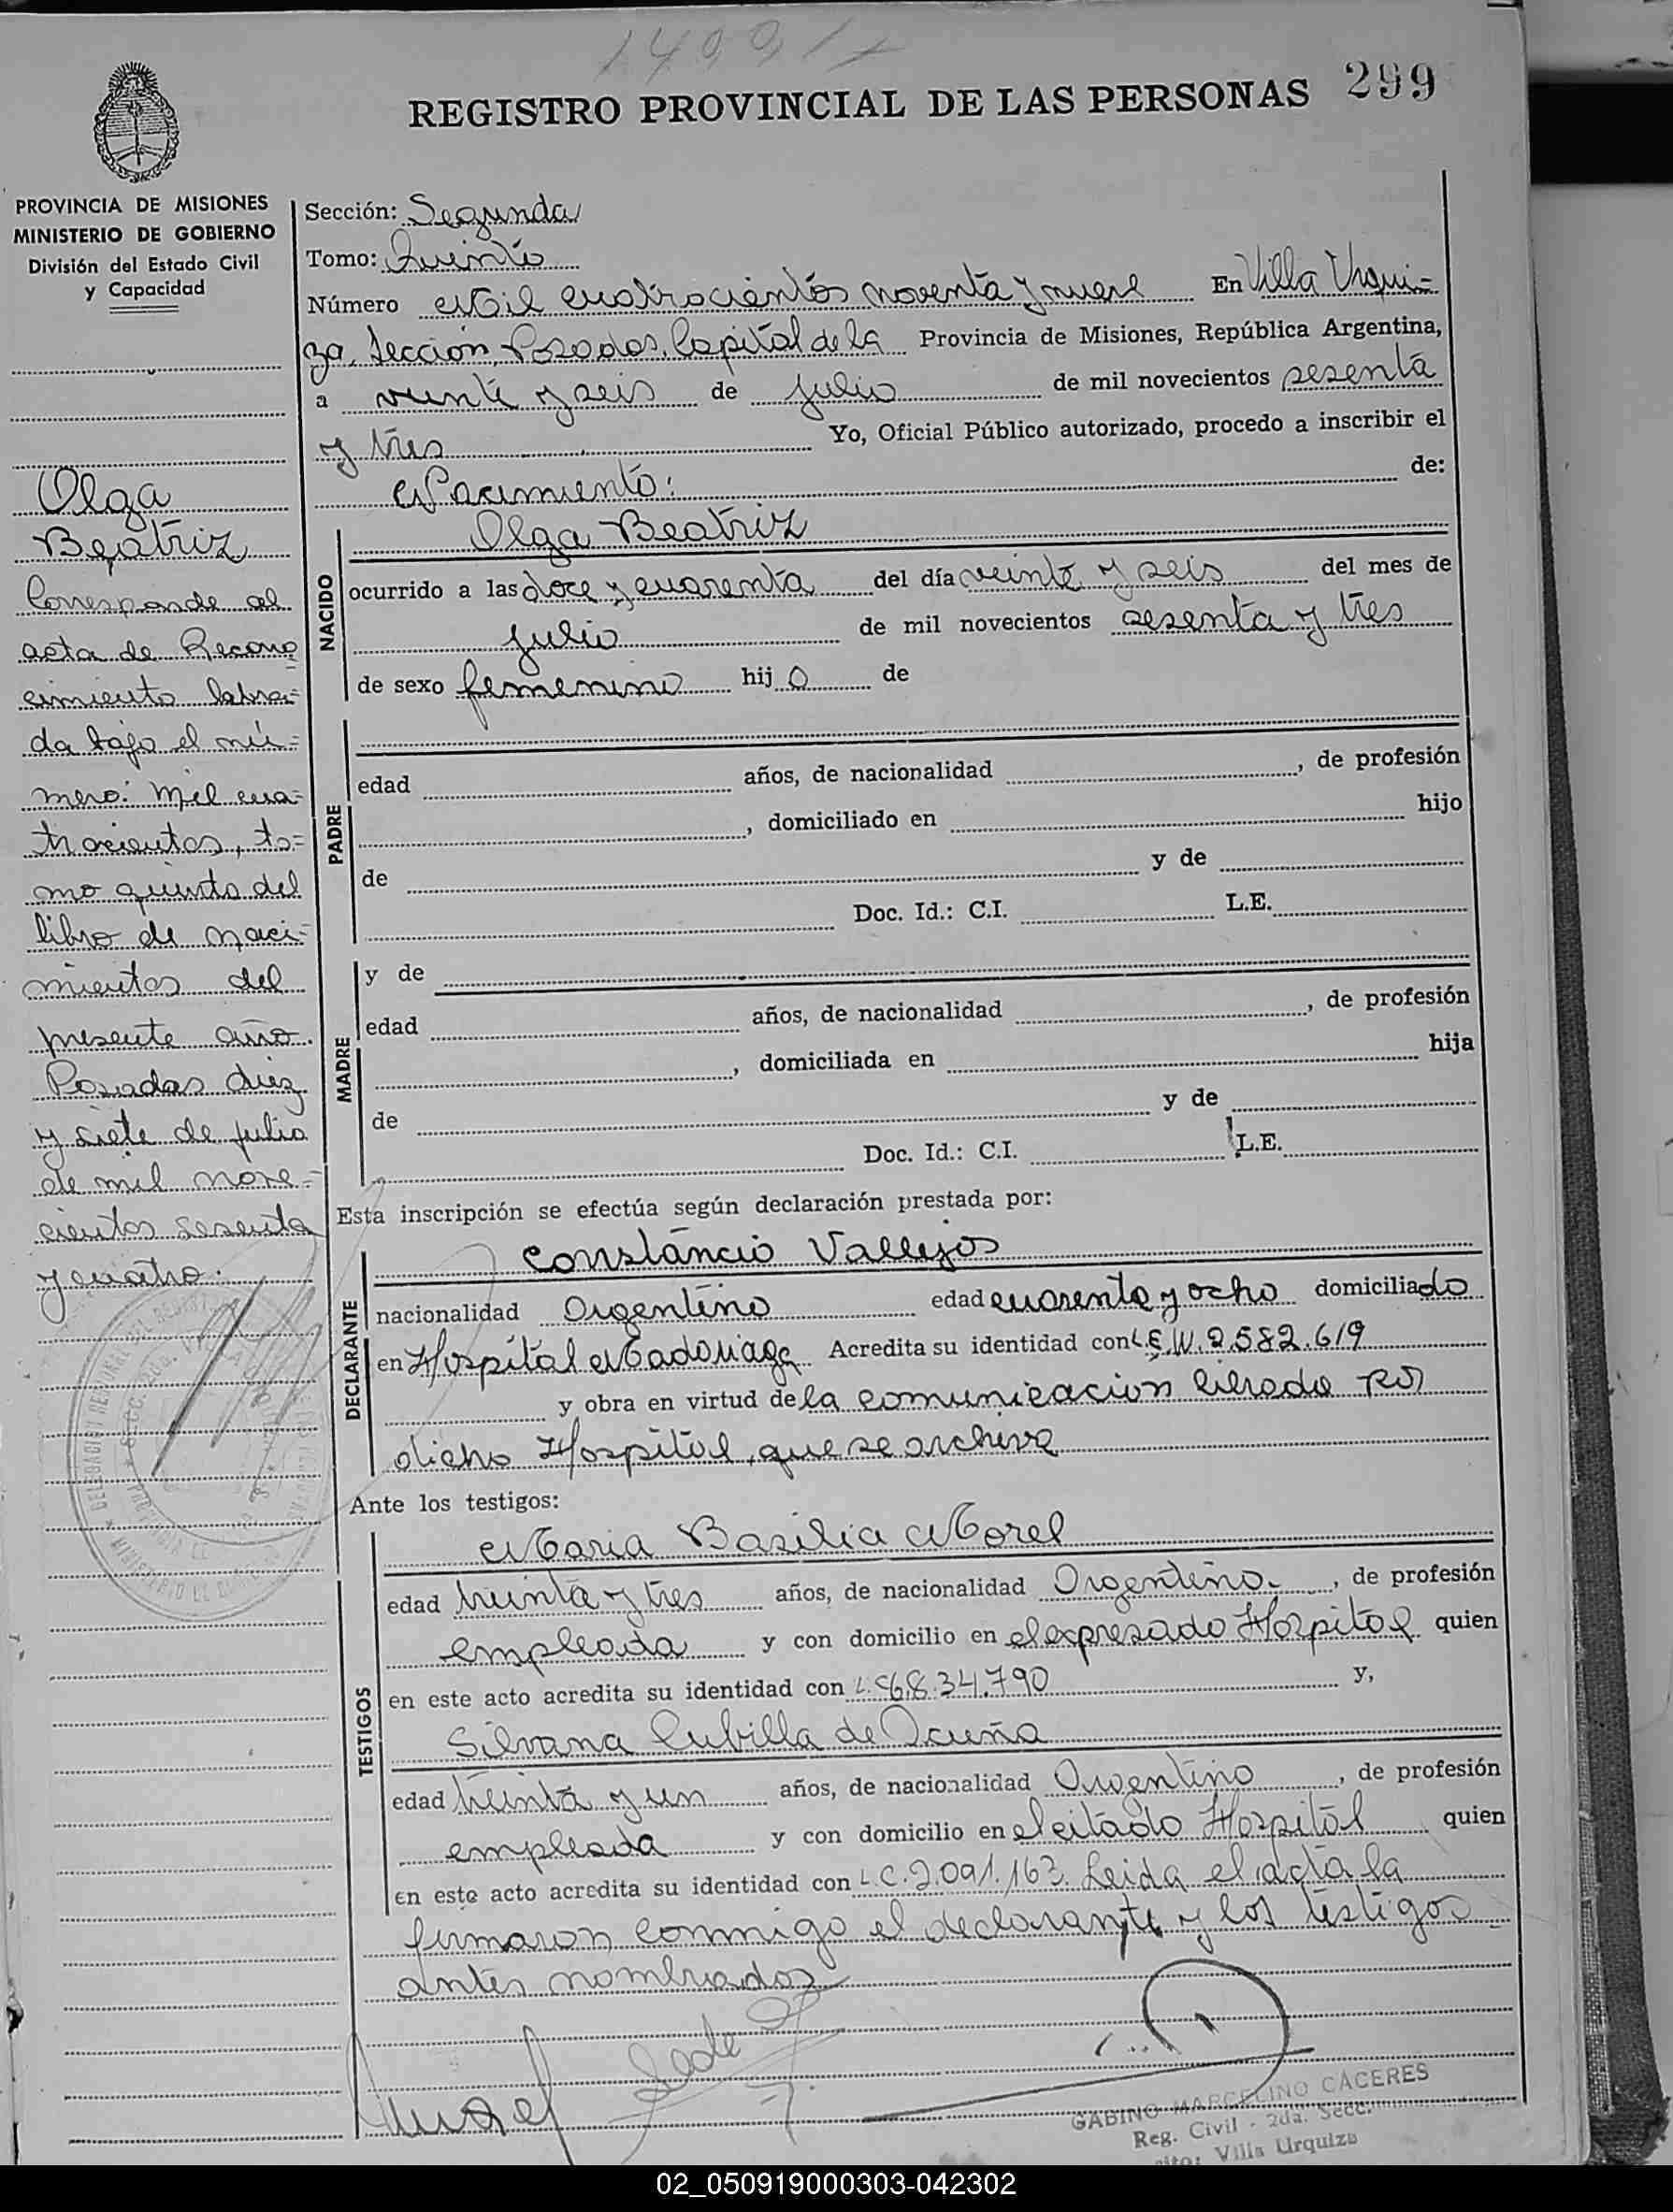 1499
REGISTRO PROVINCIAL DE LAS PERSONAS 299
PROVINCIA DE MISIONES
MINISTERIO DE GOBIERNO
División del Estado Civil
y Capacidad
Olga
Beatriz
Corresponde al
acta de Recono
cimiento labra=
da bajo el nú=
mero: mil cua=
trocientos, to=
mo quinto del
libro de naci=
mientos del
presente año.
Posadas diez
y siete de julio
de mil nove=
cientos sesenta
y cuatro.
Sección: Segunda
Tomo: Quinto
Número Mil cuatrocientos noventa y nueve En Villa Urqui=
za, Sección, Posadas, Capital de la Provincia de Misiones, República Argentina,
a veinte y seis de julio de mil novecientos sesenta
y tres Yo, Oficial Público autorizado, procedo a inscribir el
Nacimiento: de:
NACIDO
Olga Beatriz
ocurrido a las doce y cuarenta del día veinte y seis del mes de
julio de mil novecientos sesenta y tres
de sexo femenino hij o de
PADRE
edad años, de nacionalidad , de profesión
, domiciliado en hijo
de y de
Doc. Id.: C.I. L.E.
MADRE
y de
edad años, de nacionalidad , de profesión
, domiciliada en hija
de y de
Doc. Id.: C.I. L.E.
Esta inscripción se efectúa según declaración prestada por:
DECLARANTE
Constancio Vallejos
nacionalidad Argentino edad cuarenta y ocho domiciliado
en Hospital Madariaga Acredita su identidad con L.E. N. 2.582.619
y obra en virtud de la comunicacion librada por
dicho Hospital, que se archiva
Ante los testigos:
TESTIGOS
Maria Basilia Morel
edad treinta y tres años, de nacionalidad Argentino , de profesión
empleada y con domicilio en el expresado Hospital quien
en este acto acredita su identidad con L.C 6.8.34.790 y,
Silvana Cubilla de Acuña
edad treinta y un años, de nacionalidad Argentino , de profesión
empleada y con domicilio en el citado Hospital quien
en este acto acredita su identidad con L C. 2.091.163. Leida el acta la
firmaron conmigo el declarante y los testigos
antes nombrados
GABINO MARCELINO CACERES
Reg. Civil - 2da. Secc.
Villa Urquiza
02_050919000303-042302